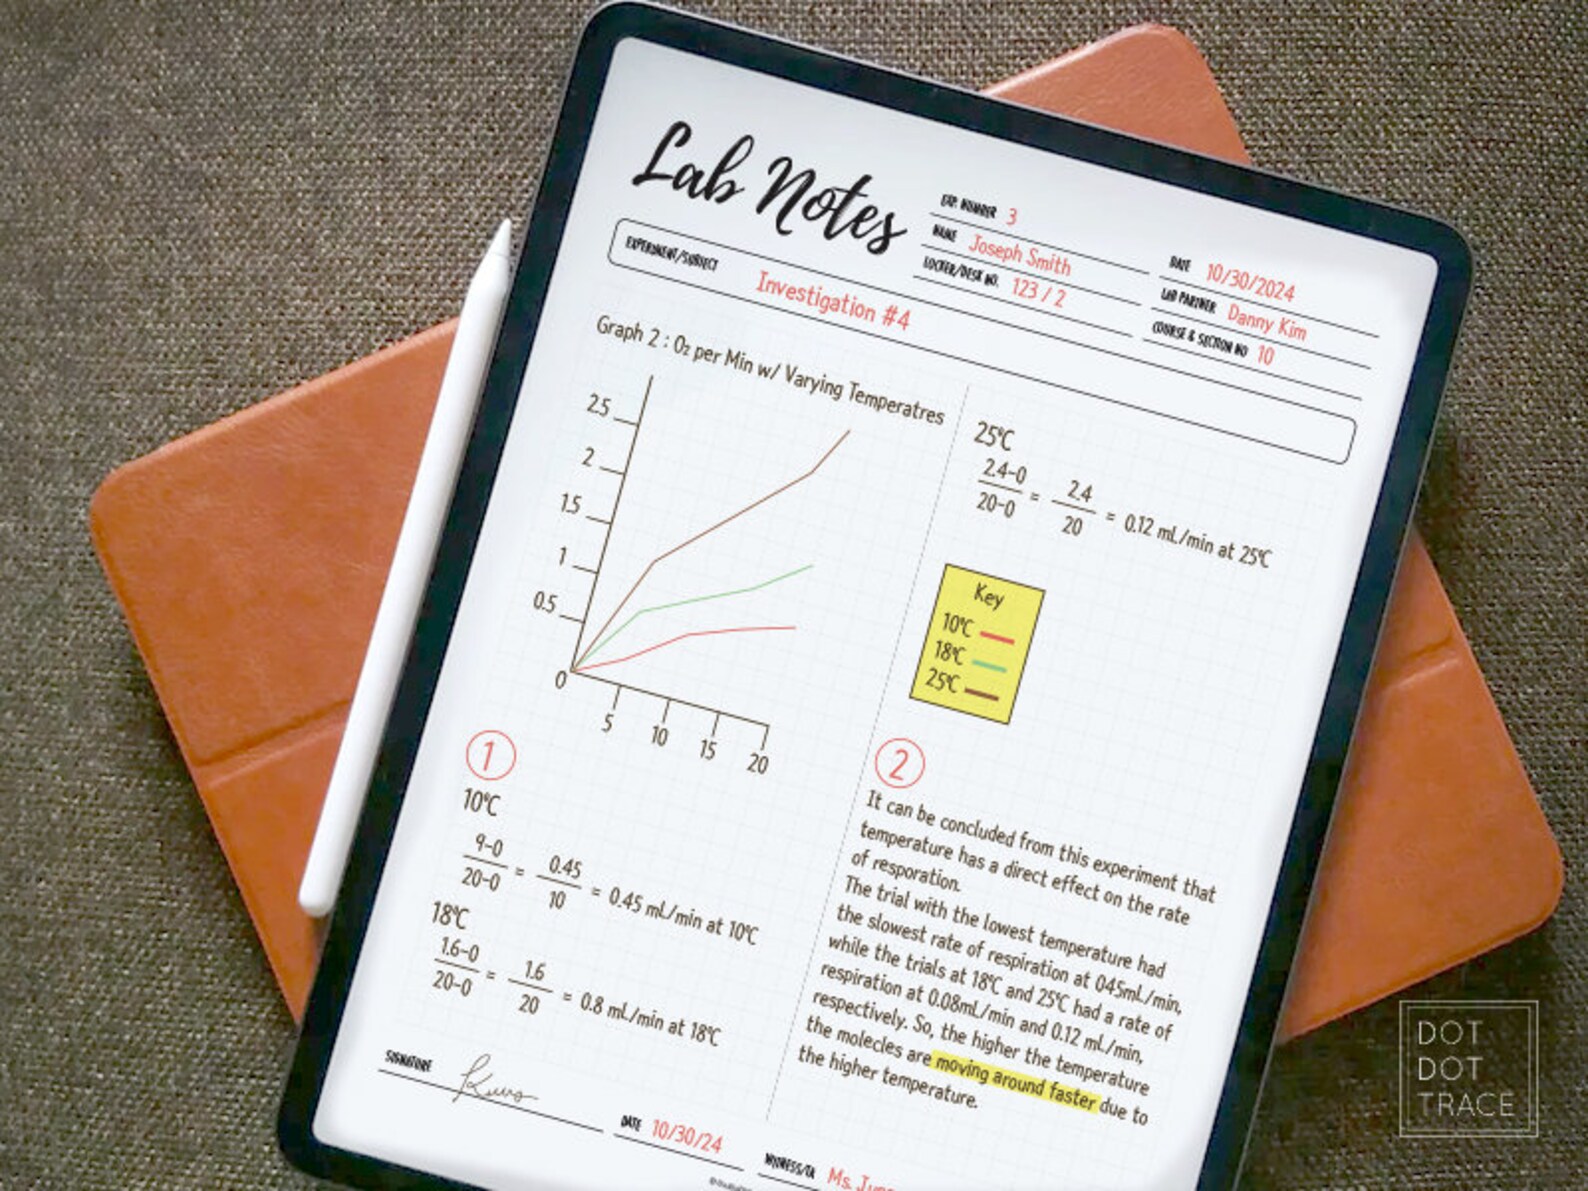 Lab Notes
EXP. NUMBER 3
NAME Joseph Smith
LOCKER/DESK NO. 123 / 2
DATE 10/30/2024
LAB PARTNER Danny Kim
COURSE & SECTION NO 10
EXPERIMENT/SUBJECT Investigation #4
Graph 2 : O₂ per Min w/ Varying Temperatres
2.5
2
1.5
1
0.5
0
5 10 15 20
1
10°C
9-0 / 20-0 = 0.45 / 10 = 0.45 mL/min at 10°C
18°C
1.6-0 / 20-0 = 1.6 / 20 = 0.8 mL/min at 18°C
25°C
2.4-0 / 20-0 = 2.4 / 20 = 0.12 mL/min at 25°C
Key
10°C
18°C
25°C
2
It can be concluded from this experiment that
temperature has a direct effect on the rate
of resporation.
The trial with the lowest temperature had
the slowest rate of respiration at 045mL/min,
while the trials at 18°C and 25°C had a rate of
respiration at 0.08mL/min and 0.12 mL/min,
respectively. So, the higher the temperature
the molecles are moving around faster due to
the higher temperature.
SIGNATURE
DATE 10/30/24
WITNESS/TA Ms.
DOT
DOT
TRACE